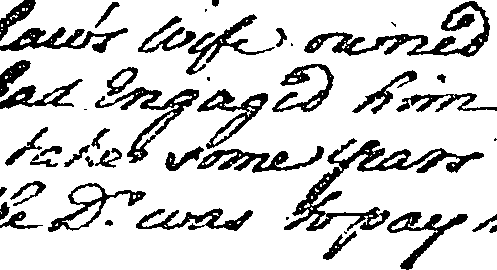 law's wife owned
had Engaged him
taken some years
the Dr. was to pay